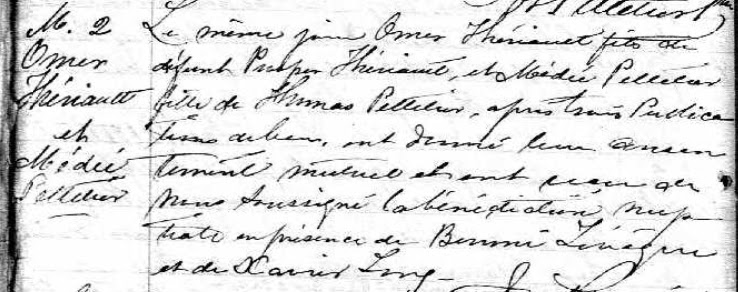 Pelletier
M. 2
Omer
Thériault
et
Médée
Pelletier
Le même jour Omer Thériault fils de
défunt Prosper Thériault, et Médée Pelletier
fille de Thomas Pelletier, après trois Publica
tions de bans, ont donné leur consen
tement mutuel et ont reçu de
nous soussigné la bénédiction nup
tiale en présence de Benoni Lévêque
et de Xavier Long